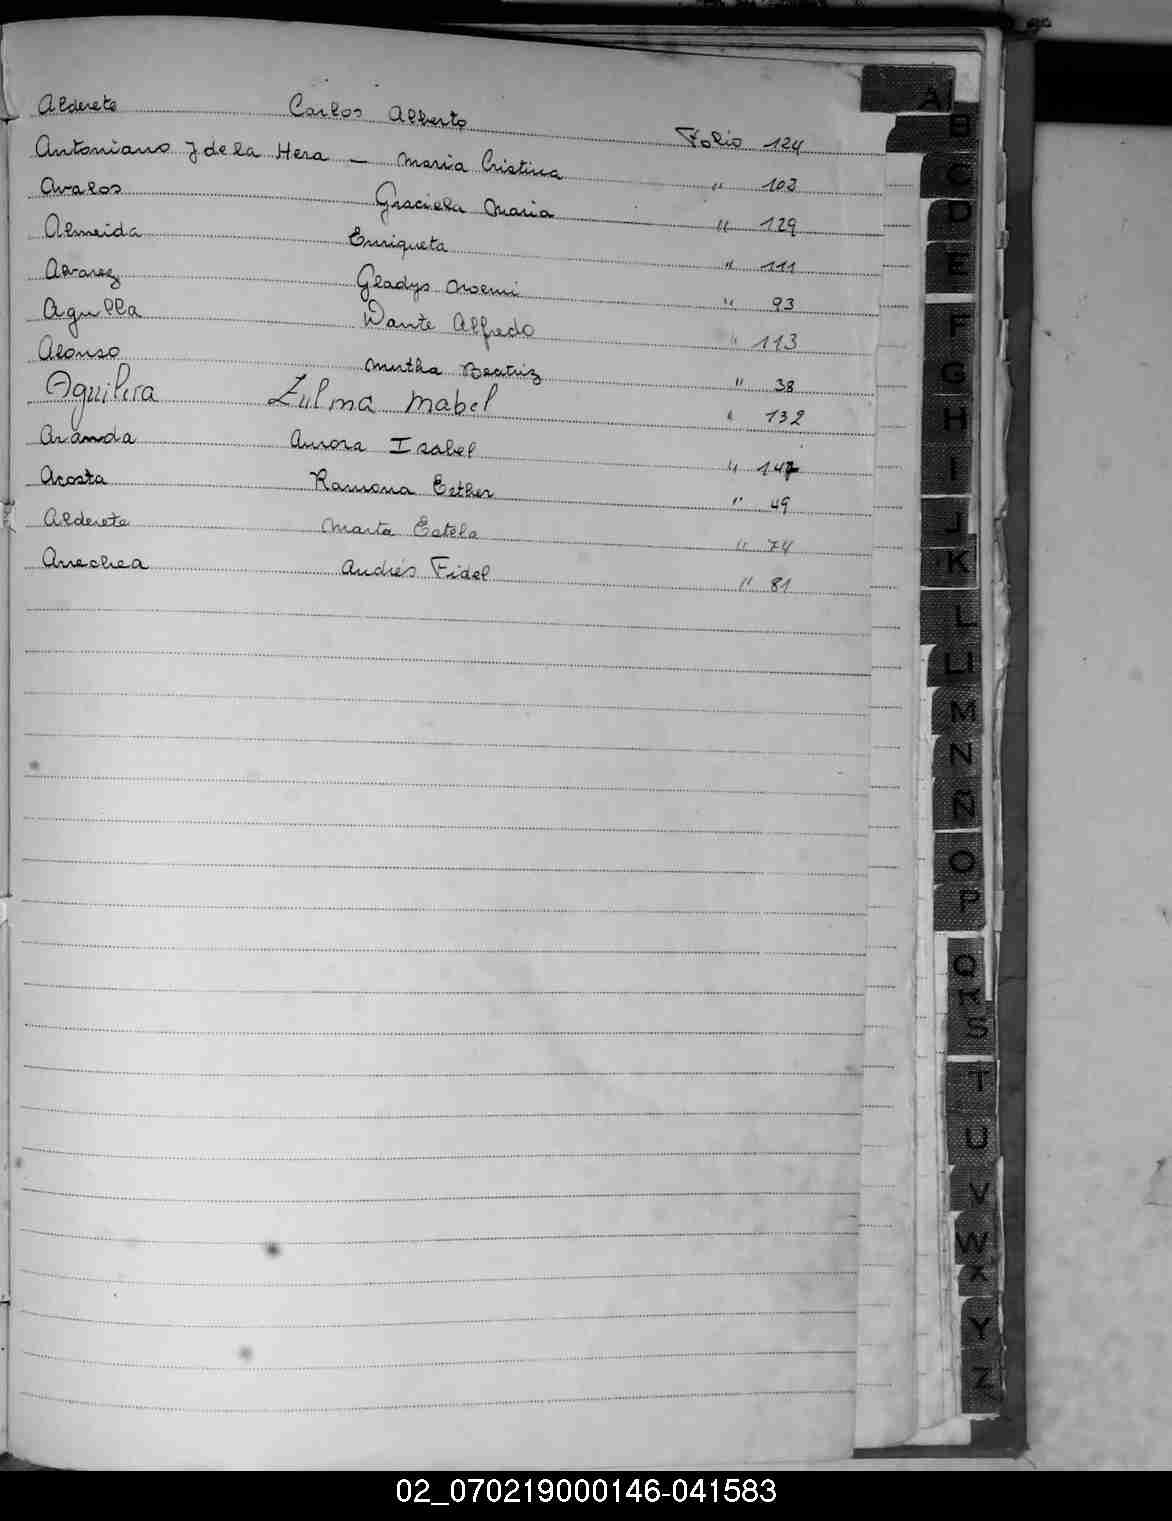 Alderete Carlos Alberto Folio 124
Antoniano J de la Hera - Maria Cristina " 103
Avalos Graciela Maria " 129
Almeida Enriqueta " 111
Alvarez Gladys Noemi " 93
Agulla Dante Alfredo " 113
Alonso Mirtha Beatriz " 38
Aguilera Zulma Mabel " 132
Aranda Aurora Isabel " 147
Acosta Ramona Esther " 49
Alderete Marta Estela " 74
Arrechea Andrés Fidel " 81
A
B
C
D
E
F
G
H
I
J
K
L
LL
M
N
Ñ
O
P
Q
R
S
T
U
V
W
X
Y
Z
02_070219000146-041583